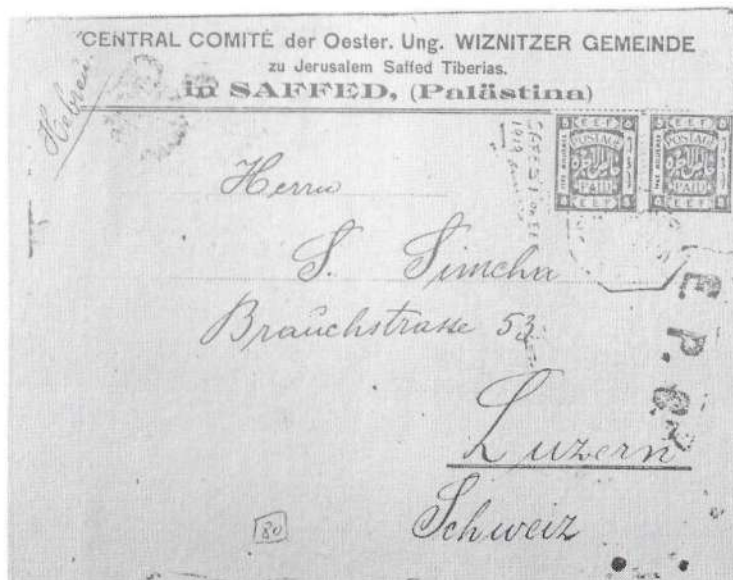 CENTRAL COMITÉ der Oester. Ung. WIZNITZER GEMEINDE
zu Jerusalem Saffed Tiberias.
in SAFFED, (Palästina)
Hebreu
E.E.F.
POSTAGE
PAID
E.E.F.
E.E.F.
POSTAGE
PAID
E.E.F.
1919
Herrn
S. Simcha
Brauchstrasse 53
E.P.C.
Luzern
Schweiz
80